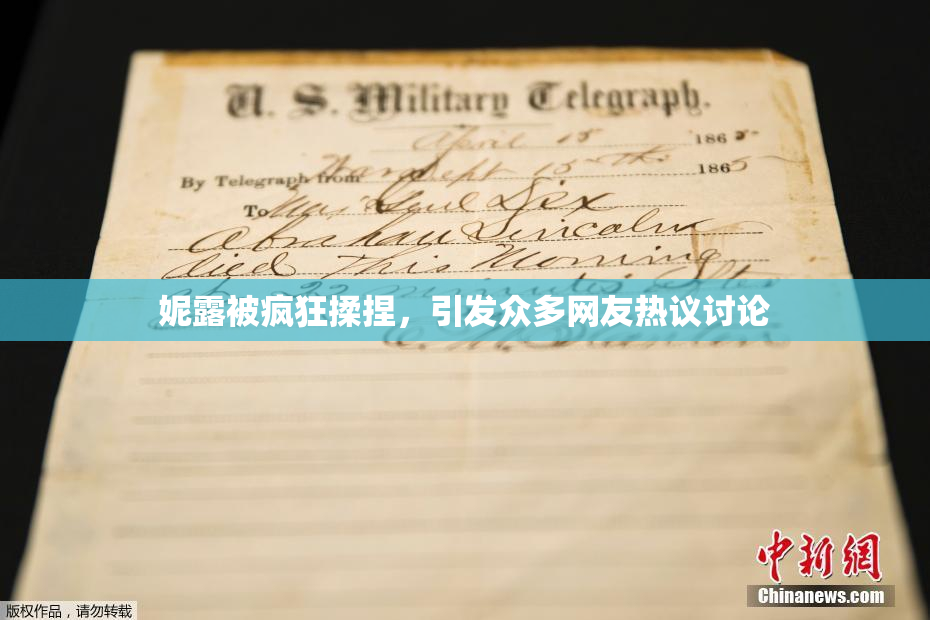 U. S. Military Telegraph.
April 15 1865
By Telegraph from War Dept 15th 1865
To Maj Genl Dix
Abraham Lincoln
died This Morning
22 minutes after
妮露被疯狂揉捏，引发众多网友热议讨论
E. M. Stanton
中新网
Chinanews.com
版权作品，请勿转载